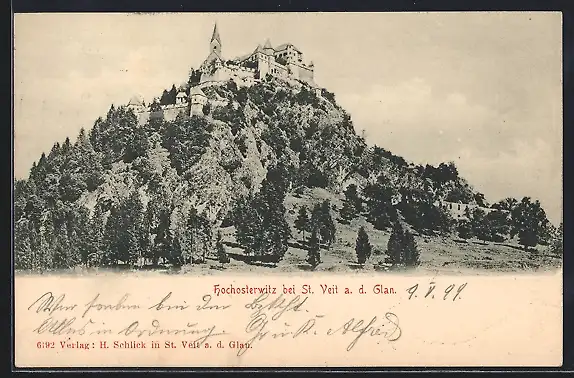 Hochosterwitz bei St. Veit a. d. Glan. 9. V. 99.
Wir bei der
Alles in Ordnung. Gr. u. K. Alfred
6192 Verlag: H. Schlick in St. Veit a. d. Glan.